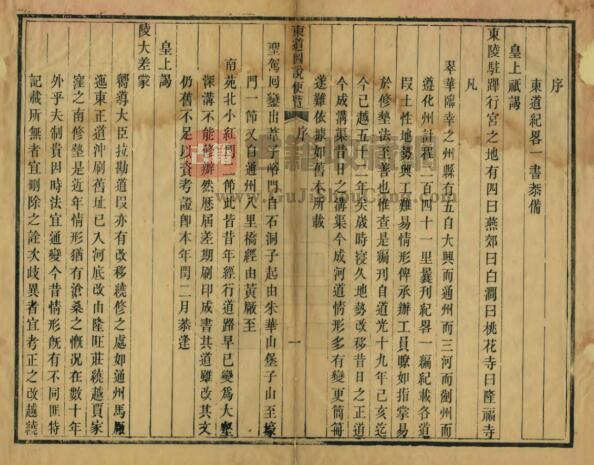 序
東道紀畧一書恭備
皇上祇謁
東陵駐蹕行宮之地有四曰燕郊曰白澗曰桃花寺曰隆福寺
凡
翠華臨幸之州縣有五自大興而通州而三河而薊州而
遵化州計程二百四十一里曩刊紀畧一編紀載各道
叚土性地勢興工難易情形俾承辦工員瞭如指掌易
於修墊法至善也惟查是編刊自道光十九年己亥迄
今已越五十二年矣歲時寖久地勢改移昔日之正道
今成溝渠昔日之溝渠今成河道情形多有變更簡冊
遂難依據如舊本所載
東道圖說便覽
序
一
聖駕囘鑾出葦子峪門自石洞子起由朱華山堡子山至壕
門一節又自通州八里橋經由黃厰至
南苑北小紅門一節此皆昔年經行道路早已變爲大壑
深溝不能修辦然歷屆差期刷印成書其道雖改其文
仍舊不足以資考證卽本年閏二月恭逢
皇上謁
陵大差蒙
嚮導大臣拉勘道叚亦有改移繞修之處如通州馬厰
迤東正道沖刷舊址已入河底改由隆旺莊繞越賈家
窪之南修墊是近年情形猶有滄桑之慨況在數十年
外乎夫制貴因時法宜通變今昔情形旣有不同興特
記載所無者宜刪除之詮次歧異者宜考正之改越繞
古籍
www.GuJiShuCang.com